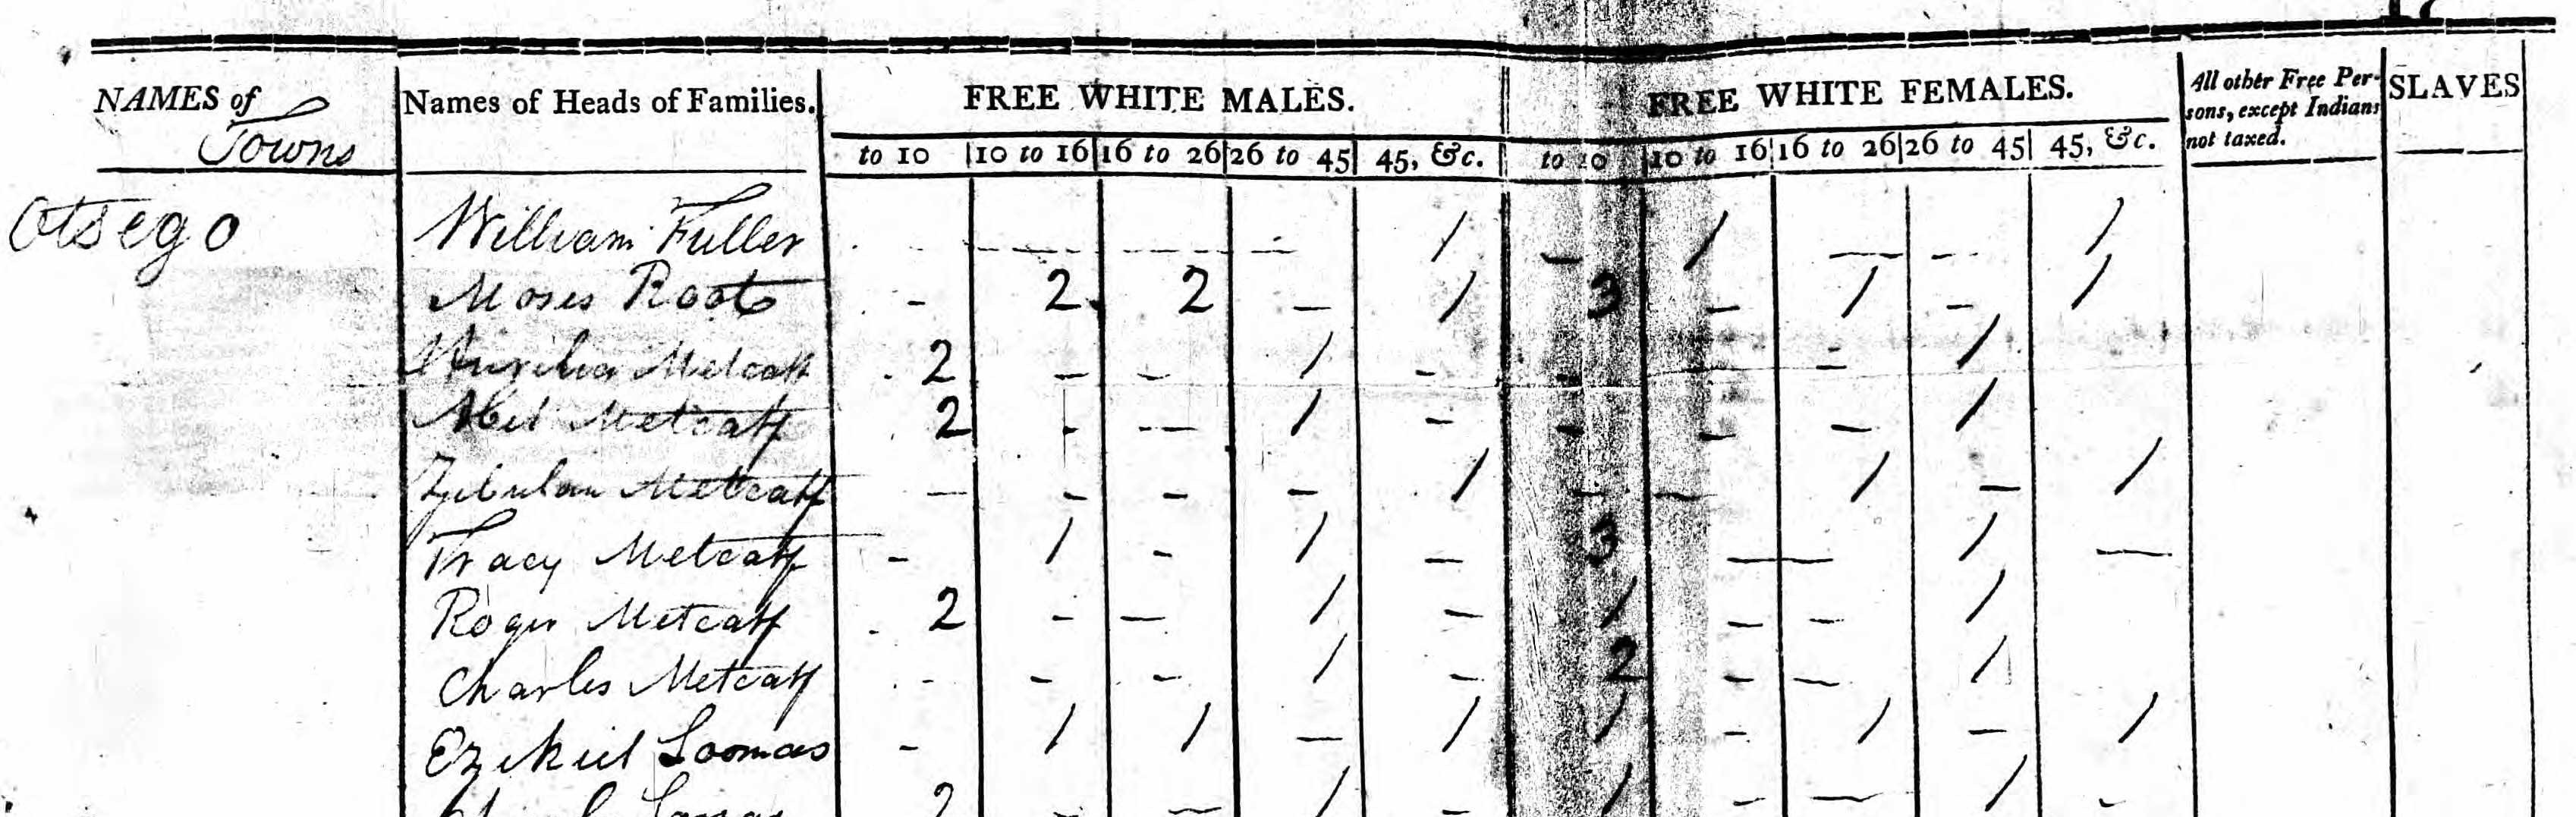 17
NAMES of Towns | Names of Heads of Families. | FREE WHITE MALES. | FREE WHITE FEMALES. | All other Free Persons, except Indians not taxed. | SLAVES
to 10 | 10 to 16 | 16 to 26 | 26 to 45 | 45, &c. | to 10 | 10 to 16 | 16 to 26 | 26 to 45 | 45, &c.
Otsego William Fuller - - - - 1 - 1 - - 1
Moses Root - 2 2 - 1 3 - 1 - 1
Metcalf 2 - - 1 - - - 1
Abel Metcalf 2 - - 1 - - - - 1
Zebulon Metcalf - - - - 1 - - 1 - 1
Tracy Metcalf - 1 - 1 - 3 - - 1 -
Roger Metcalf 2 - - 1 - 1 - - 1
Charles Metcalf - - - 1 - 2 - - 1
Ezekiel Loomas - 1 1 - 1 1 - 1 - 1
2 - - 1 - 1 - - 1 -